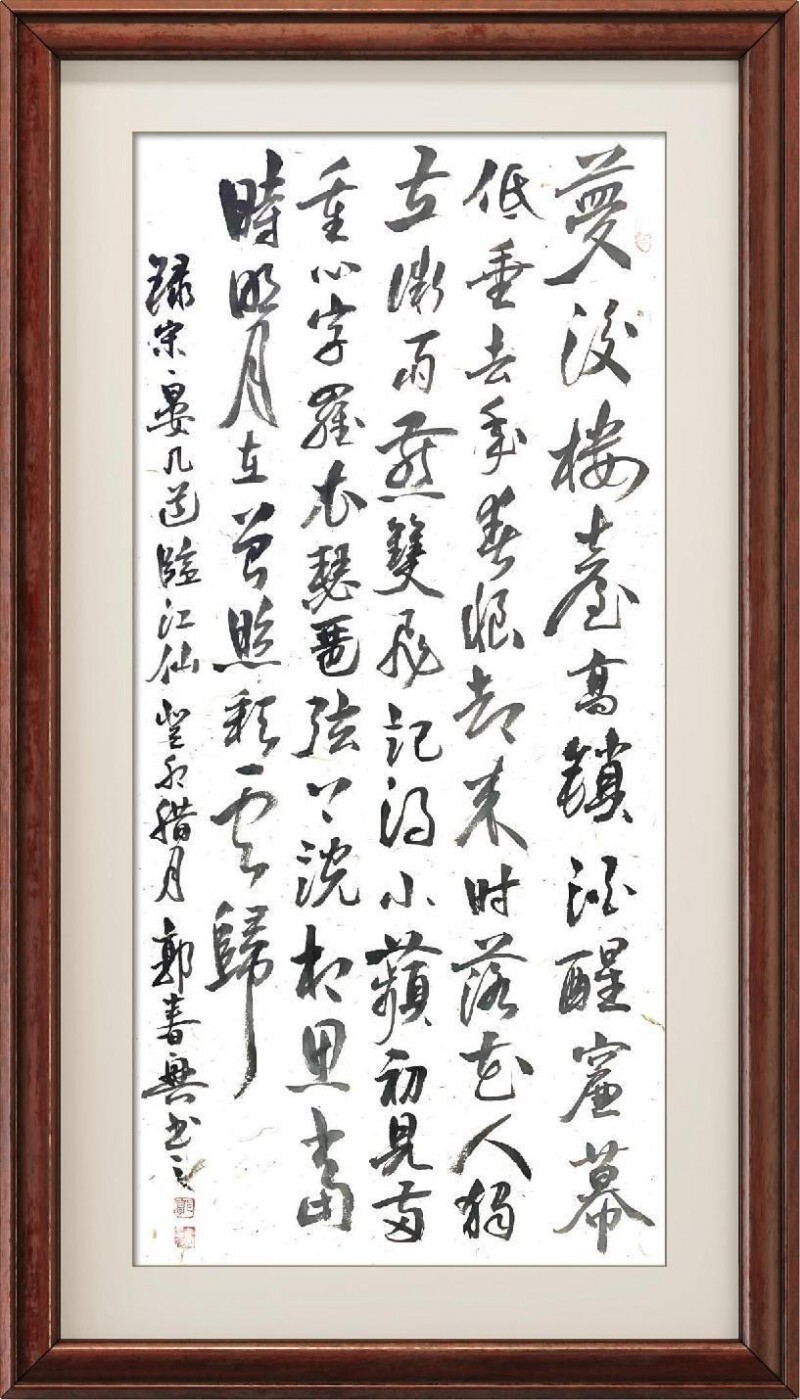 夢後樓臺高鎖酒醒簾幕
低垂去年春恨却来时落花人獨
立微雨燕雙飛記得小蘋初見兩
重心字羅衣琵琶弦上説相思當
時明月在曾照彩雲歸
録宋晏几道臨江仙癸卯腊月郭春興书之